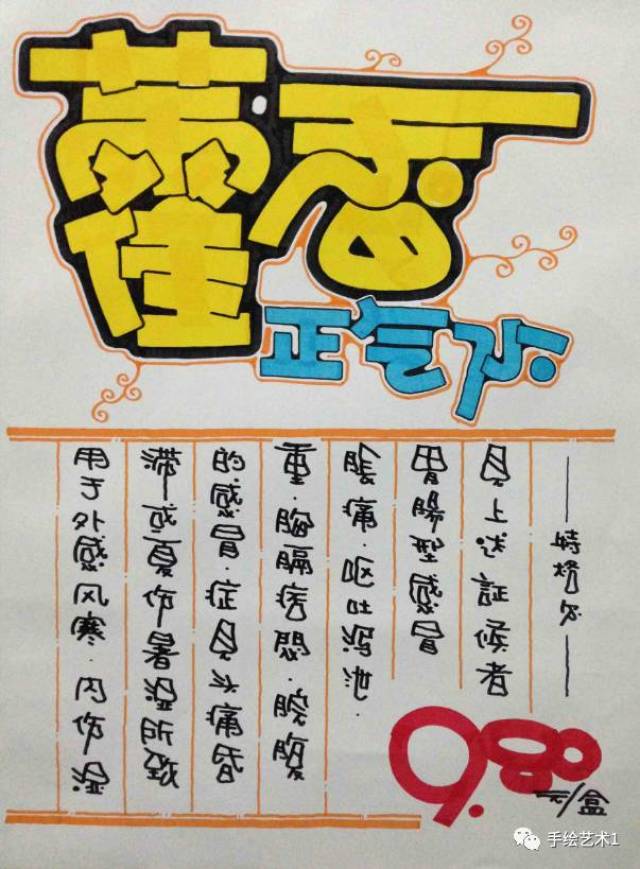 藿香
正气水
用于外感风寒·内伤湿
滞或夏伤暑湿所致
的感冒·症見头痛昏
重·胸膈痞悶·脘腹
脹痛·呕吐泻泄·
胃腸型感冒
見上述証候者
——特格尔——
9.80元/盒
手绘艺术1